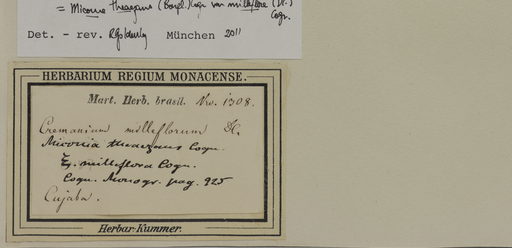 = Miconia theaezans (Bonpl.) Cogn. var milliflora (DC.) Cogn.
Det. - rev. R Goldenberg München 2011
HERBARIUM REGIUM MONACENSE.
Mart. Herb. brasil. No. 1308.
Cremanium milleflorum DC.
Miconia theaezans Cogn.
milleflora Cogn.
Cogn. Monogr. pag. 925
Cujaba.
Herbar-Kummer.